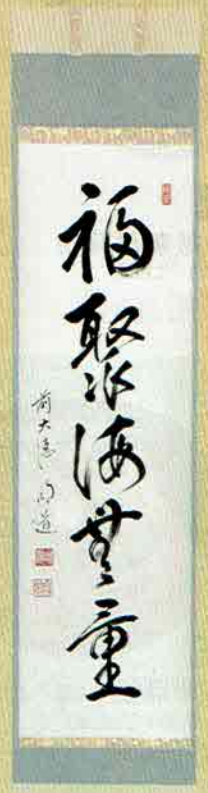 福聚海無量
前大徳 剛道